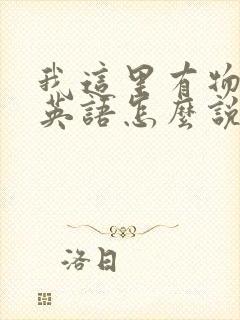 我這里有物
英語怎麼說
洛日